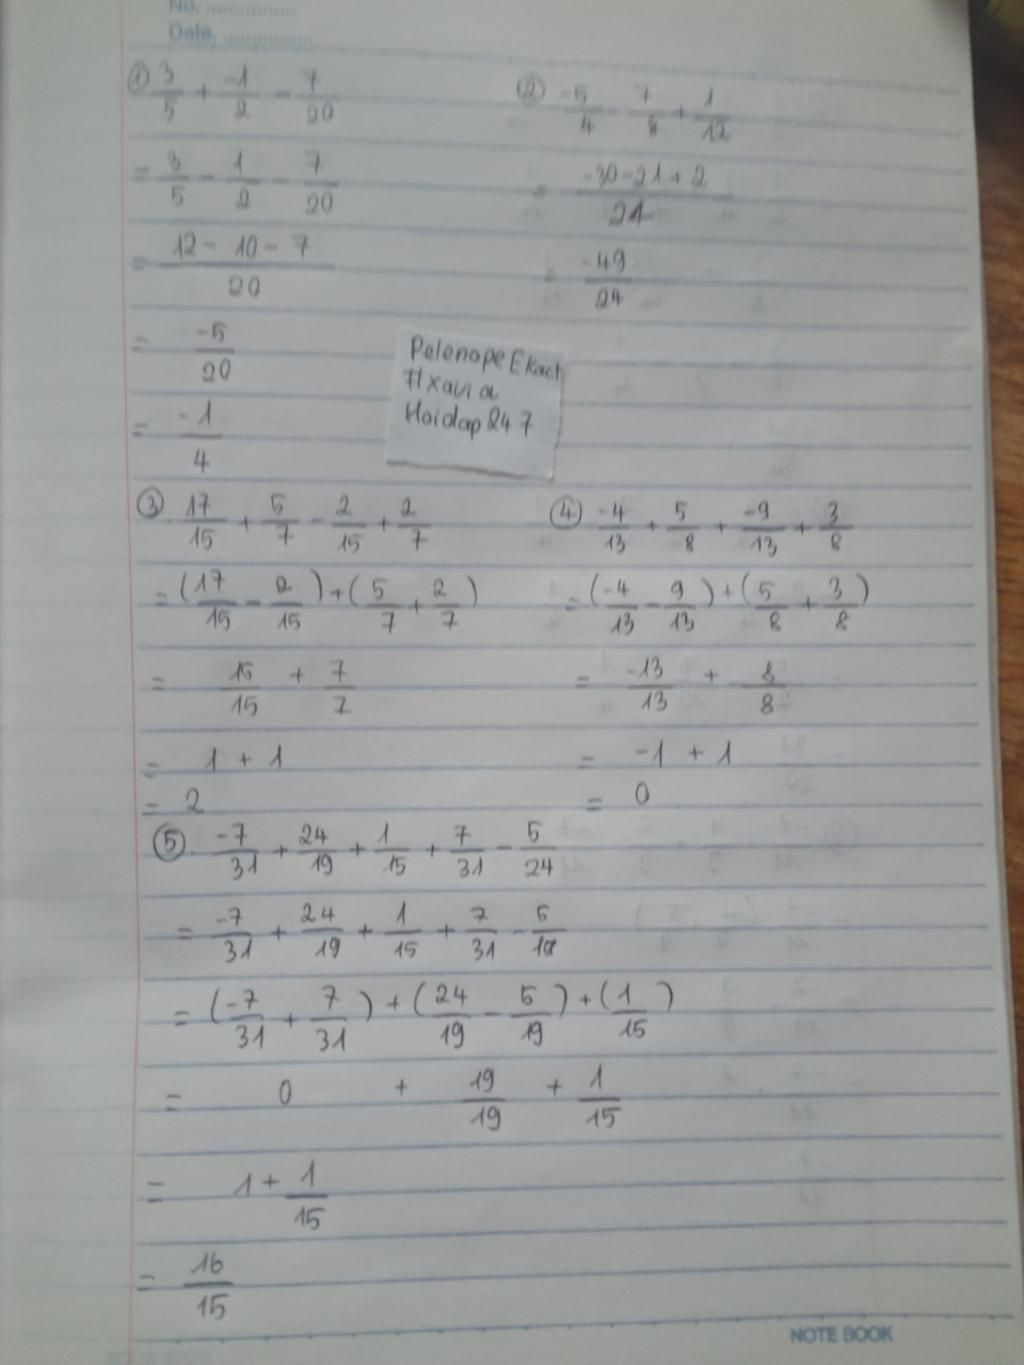 No. ...............
Date. ...............
① 3/5 + -1/2 - 7/20
= 3/5 - 1/2 - 7/20
= (12 - 10 - 7)/20
= -5/20
= -1/4
② -5/4 - 7/8 + 1/12
= (-30 - 21 + 2)/24
= -49/24
Pelenope Ekach
7Ixavia
Hoidap247
③ 17/15 + 5/7 - 2/15 + 2/7
= (17/15 - 2/15) + (5/7 + 2/7)
= 15/15 + 7/7
= 1 + 1
= 2
④ -4/13 + 5/8 + -9/13 + 3/8
= (-4/13 - 9/13) + (5/8 + 3/8)
= -13/13 + 8/8
= -1 + 1
= 0
⑤ -7/31 + 24/19 + 1/15 + 7/31 - 5/24
= -7/31 + 24/19 + 1/15 + 7/31 - 5/19
= (-7/31 + 7/31) + (24/19 - 5/19) + (1/15)
= 0 + 19/19 + 1/15
= 1 + 1/15
= 16/15
NOTE BOOK